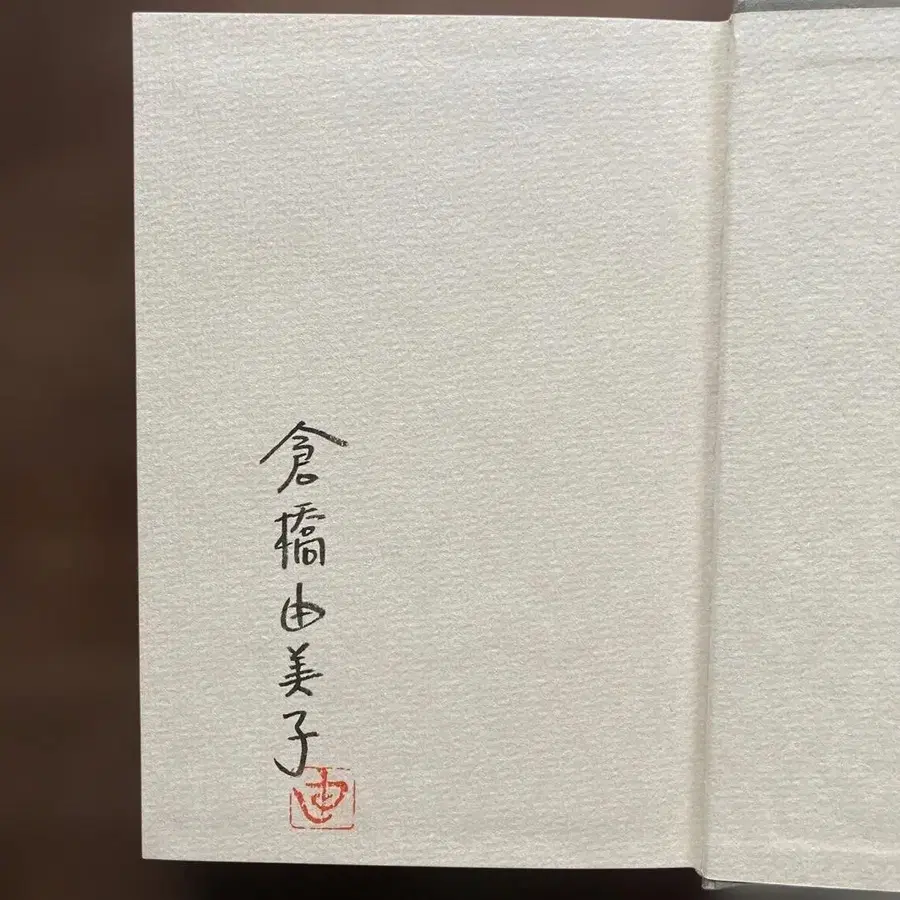 倉橋由美子
由